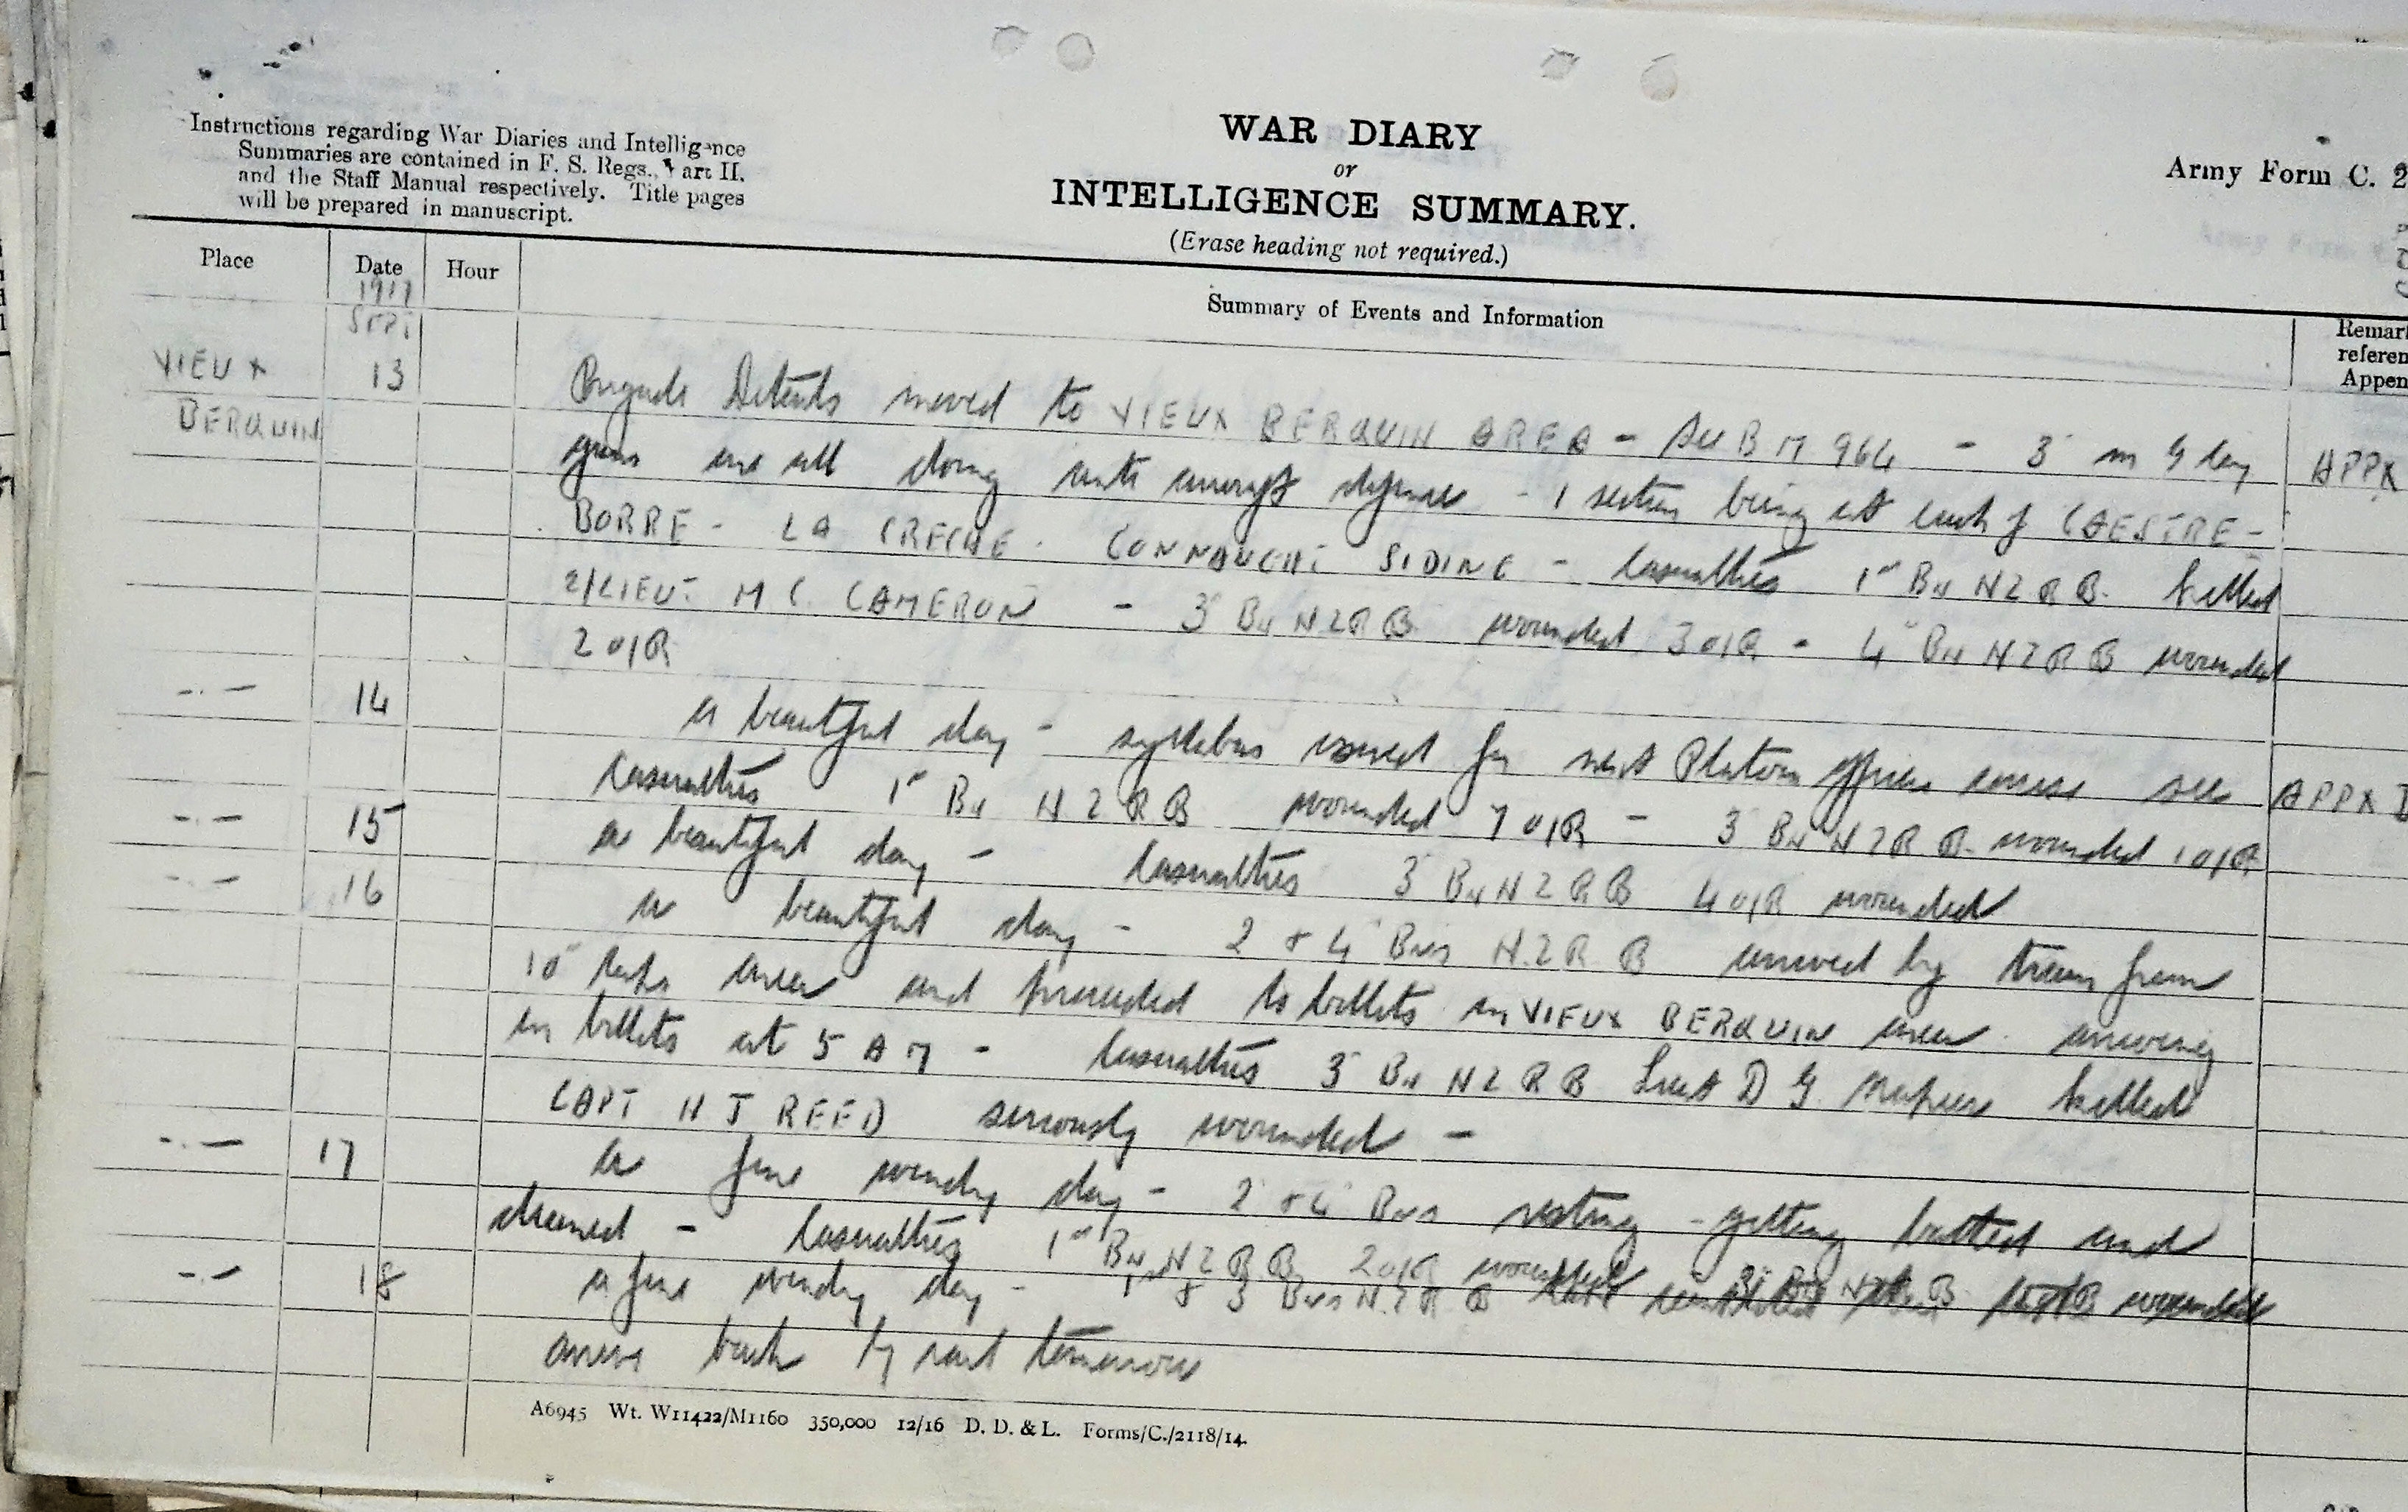 Instructions regarding War Diaries and Intelligence
Summaries are contained in F. S. Regs., Part II.
and the Staff Manual respectively. Title pages
will be prepared in manuscript.
WAR DIARY
or
INTELLIGENCE SUMMARY.
(Erase heading not required.)
Army Form C. 2
Place Date Hour Summary of Events and Information
Remar
referen
Appen
1917
SEPT
VIEUX 13 Brigade Details moved to VIEUX BERQUIN AREA - See B M 964 - 3 M G Coy APPX
BERQUIN guns are all doing anti aircraft defence - 1 section being at each of CAESTRE -
BORRE - LA CRECHE - CONNAUGHT SIDING - Casualties 1st Bn N Z R B. killed
2/LIEUT M C. CAMERON - 3 Bn N Z R B wounded 3 O/R - 4 Bn N Z R B wounded
2 O/R
-.- 14 a beautiful day - syllabus issued for next Platoon officers course see APPX
Casualties 1st Bn N Z R B wounded 7 O/R - 3 Bn N Z R B. wounded 1 O/R
-.- 15 a beautiful day - Casualties 3 Bn N Z R B 4 O/R wounded
-.- 16 a beautiful day - 2 & 4 Bns N.Z R B arrived by train from
10 Corps area and proceeded to billets in VIEUX BERQUIN area. arriving
in billets at 5 A M - Casualties 3 Bn N Z R B Lieut D G killed
CAPT H J REED seriously wounded -
-.- 17 a fine windy day - 2 & 4 Bns resting - getting bathed and
cleaned - Casualties 1st Bn N Z R B 2 O/R wounded
-.- 18 a fine windy day - 1st & 3 Bns N.Z R B
arrive back by rail tomorrow
A6945 Wt. W11422/M1160 350,000 12/16 D. D. & L. Forms/C./2118/14.